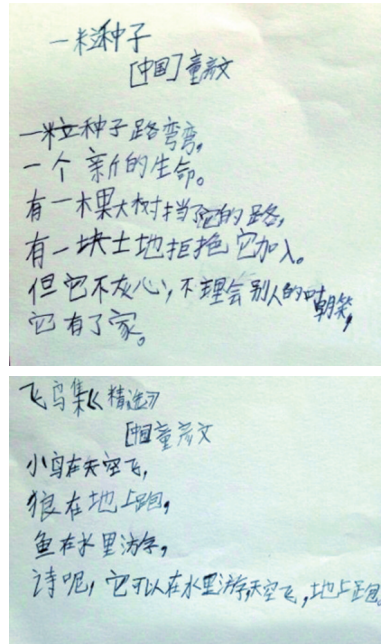 一粒种子
[中国]童彦文
一粒种子路弯弯,
一个新的生命。
有一棵大树挡了它的路,
有一块土地拒绝它加入。
但它不灰心,不理会别人的嘲笑,
它有了家。
飞鸟集《精选》
[中国]童彦文
小鸟在天空飞,
狼在地上跑,
鱼在水里游,
诗呢,它可以在水里游,天空飞,地上跑